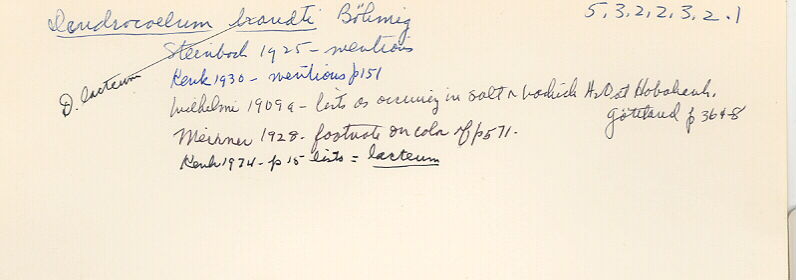 Dendrocoelum brandti Böhmig 5,3.2,2,3.2.1
Steinböck 1925 - mentions
D. lacteum
Kenk 1930 - mentions p151
Wilhelmi 1909a - lists as occurring in salt or brackish H2O at Hoborank,
Gottland p 364-8
Meixner 1928 - footnote on color of p571.
Kenk 1974 - p 15 lists = lacteum